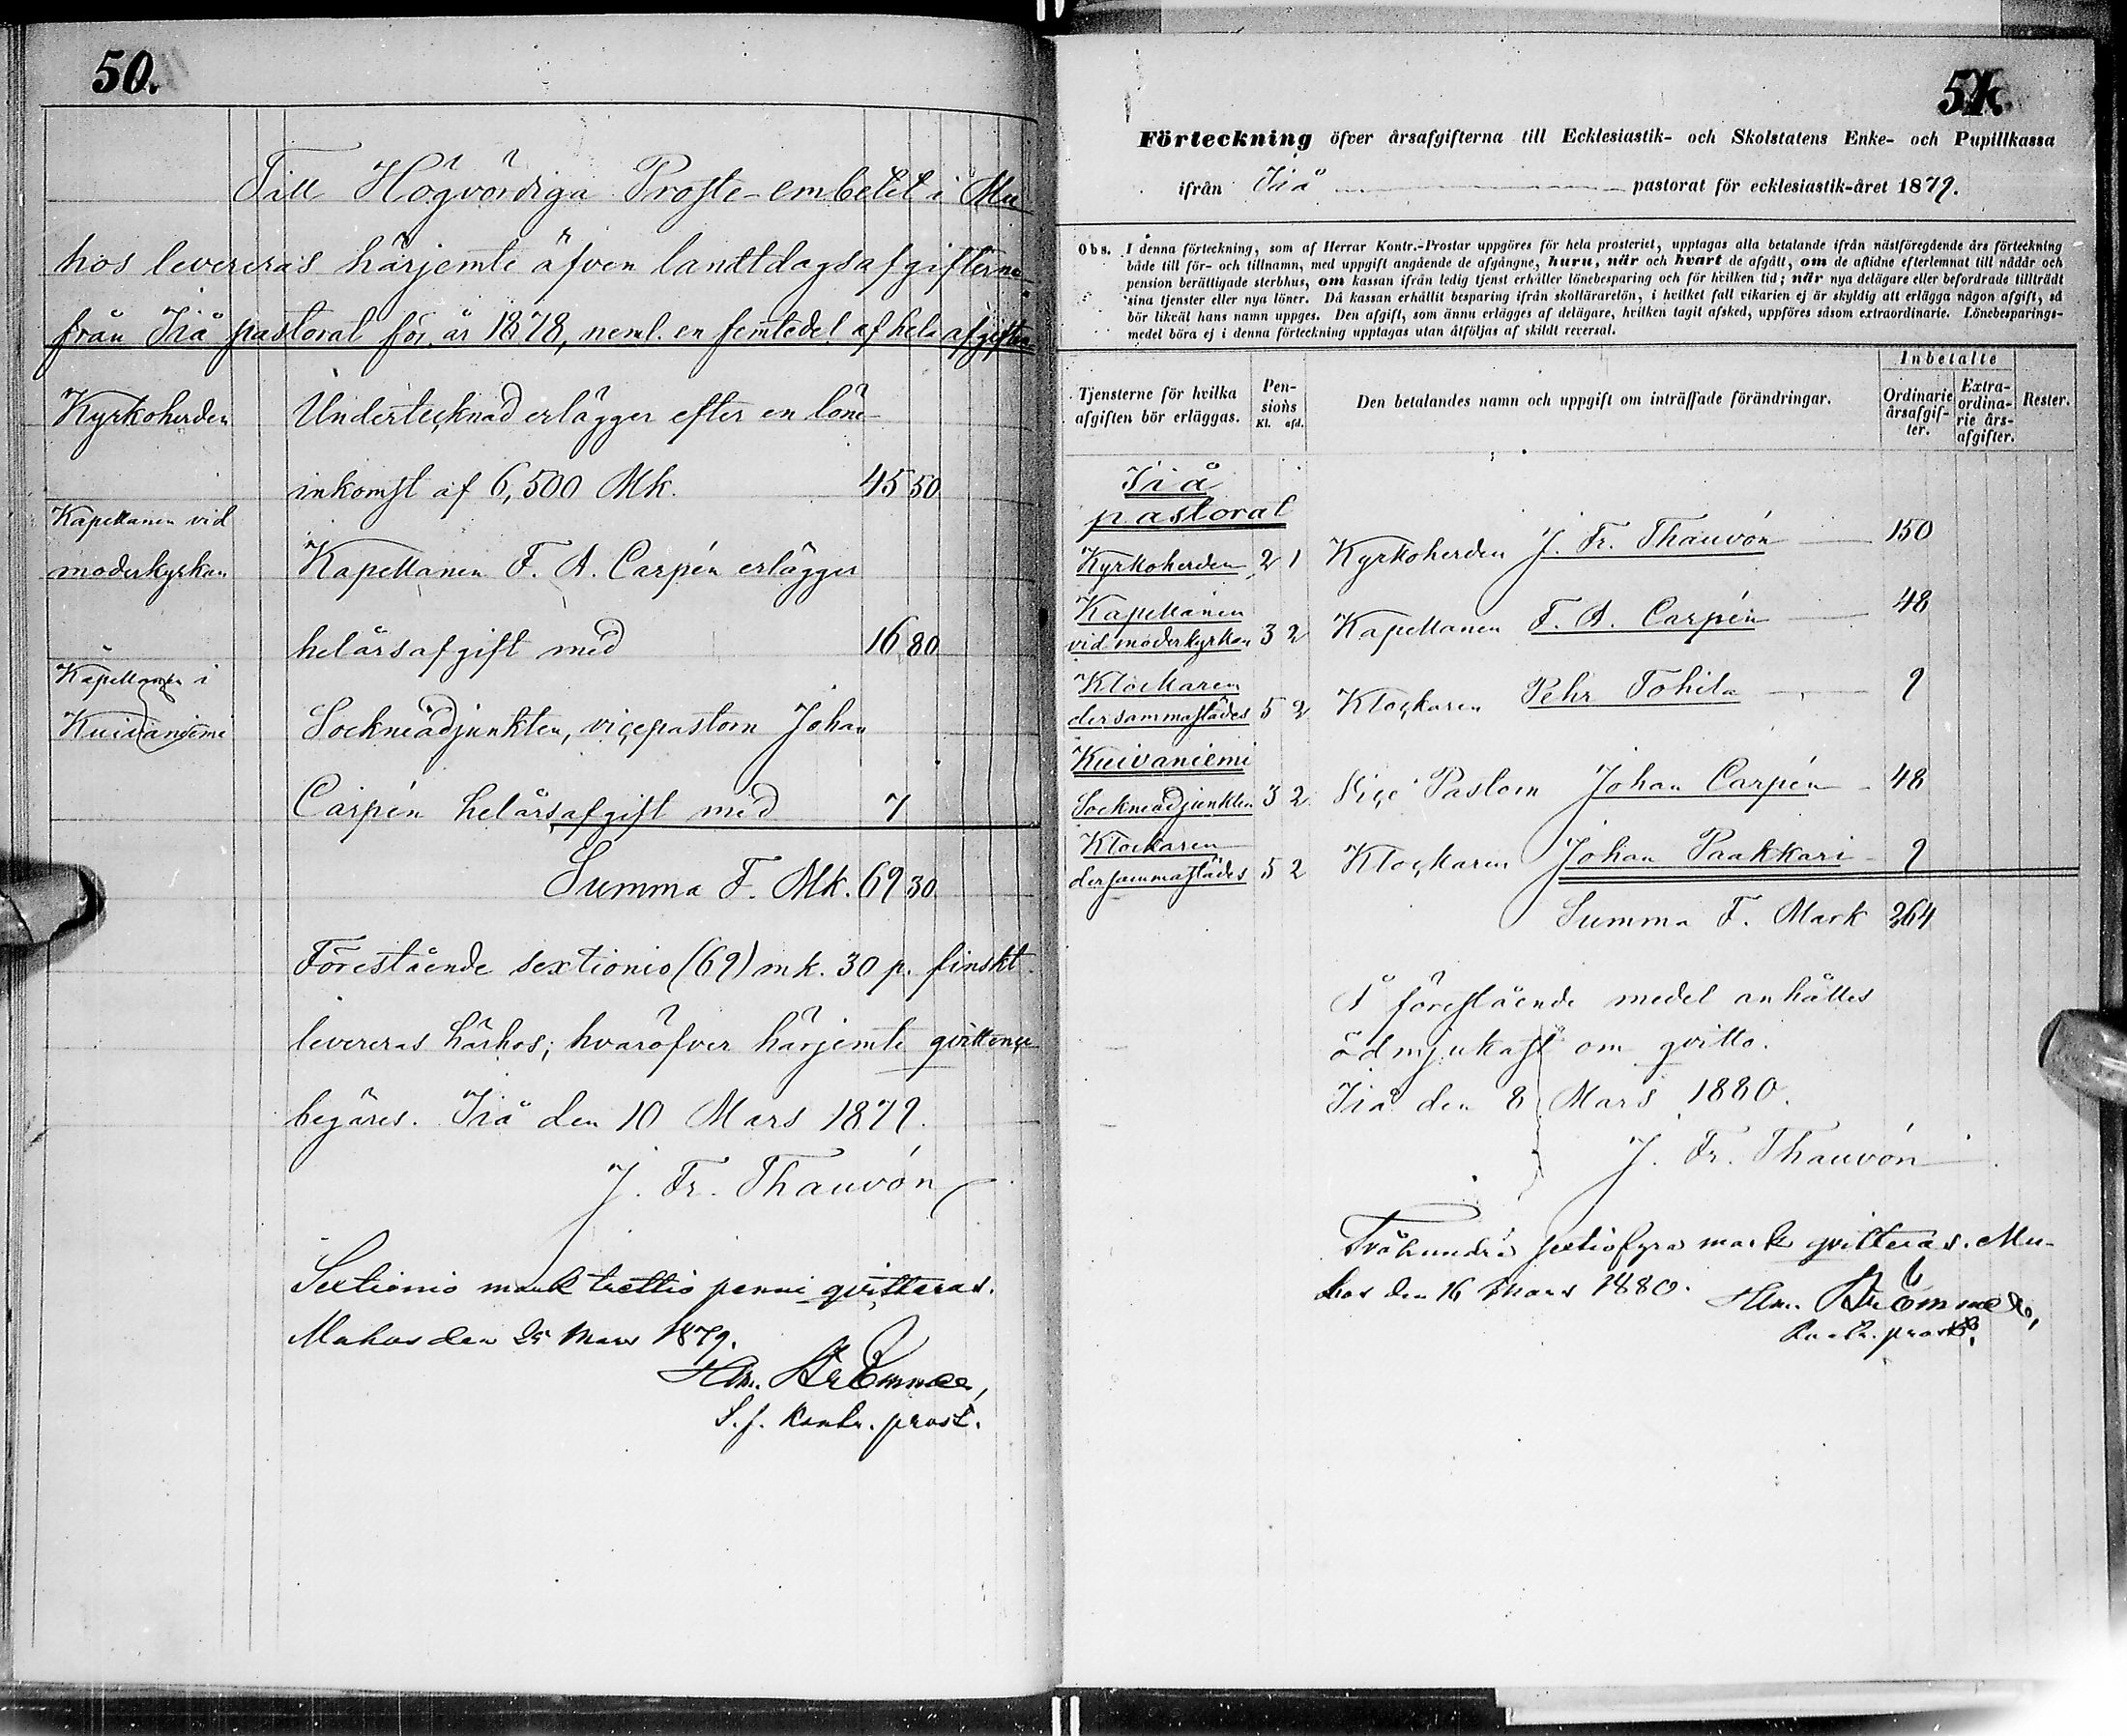 50.
Till Högvördiga Proste-embetet i Mu-
hos levereras härjemte äfven landtdagsafgifterne
från Iiå pastorat för år 1878, neml. en femtedel af hela afgiften.
Kyrkoherden Undertecknad erlägger efter en löne-
inkomst af 6,500 Mk. 45 50
Kapellanen vid
moderkyrkan Kapellanen F. A. Carpén erlägger
helårsafgift med 16 80
Kapellanen i
Kuivaniemi Sockneadjunkten, vicepastorn Johan
Carpén helårsafgift med 7
Summa F. Mk. 69 30
Förestående sextionio (69) mk. 30 p. finskt
levereras härhos; hvaröfver härjemte qvittence
begäres. Iiå den 10 Mars 1879.
J. Fr. Thauvón
Sextionio mark trettio penni qvitteras.
Muhos den 25 Mars 1879.
Hm. Strömmer,
S. f. Kontr. prost.
51.
Förteckning öfver årsafgifterna till Ecklesiastik- och Skolstatens Enke- och Pupillkassa
ifrån Iiå pastorat för ecklesiastik-året 1879.
Obs. I denna förteckning, som af Herrar Kontr.-Prostar uppgöres för hela prosteriet, upptagas alla betalande ifrån nästföregående års förteckning
både till för- och tillnamn, med uppgift angående de afgångne, huru, när och hvart de afgått, om de aflidne efterlemnat till nådår och
pension berättigade sterbhus, om kassan ifrån ledig tjenst erhåller lönebesparing och för hvilken tid; när nya delägare eller befordrade tillträdt
sina tjenster eller nya löner. Då kassan erhållit besparing ifrån skollärarelön, i hvilket fall vikarien ej är skyldig att erlägga någon afgift, så
bör likväl hans namn uppges. Den afgift, som ännu erlägges af delägare, hvilken tagit afsked, uppföres såsom extraordinarie. Lönebesparings-
medel böra ej i denna förteckning upptagas utan åtföljas af skildt reversal.
Tjensterne för hvilka
afgiften bör erläggas.
Pen-
sions
Kl. afd.
Den betalandes namn och uppgift om inträffade förändringar.
Inbetalte
Ordinarie
årsafgif-
ter.
Extra-
ordina-
rie års-
afgifter.
Rester.
Iiå
pastorat
Kyrkoherden 2 1 Kyrkoherden J. Fr. Thauvón 150
Kapellanen
vid moderkyrkan 3 2 Kapellanen F. A. Carpén 48
Klockaren
dersammastädes 5 2 Klockaren Pehr Tohila 9
Kuivaniemi
Sockneadjunkten 3 2 Vice Pastorn Johan Carpén 48
Klockaren
dersammastädes 5 2 Klockaren Johan Paakkari 9
Summa F. Mark 264
Å förestående medel anhålles
ödmjukast om qvitto.
Iiå den 8 Mars 1880.
J. Fr. Thauvón
Tvåhundra sextiofyra mark qvitteras. Mu-
hos den 16 Mars 1880. Hm. Strömmer,
Kontr. prost.